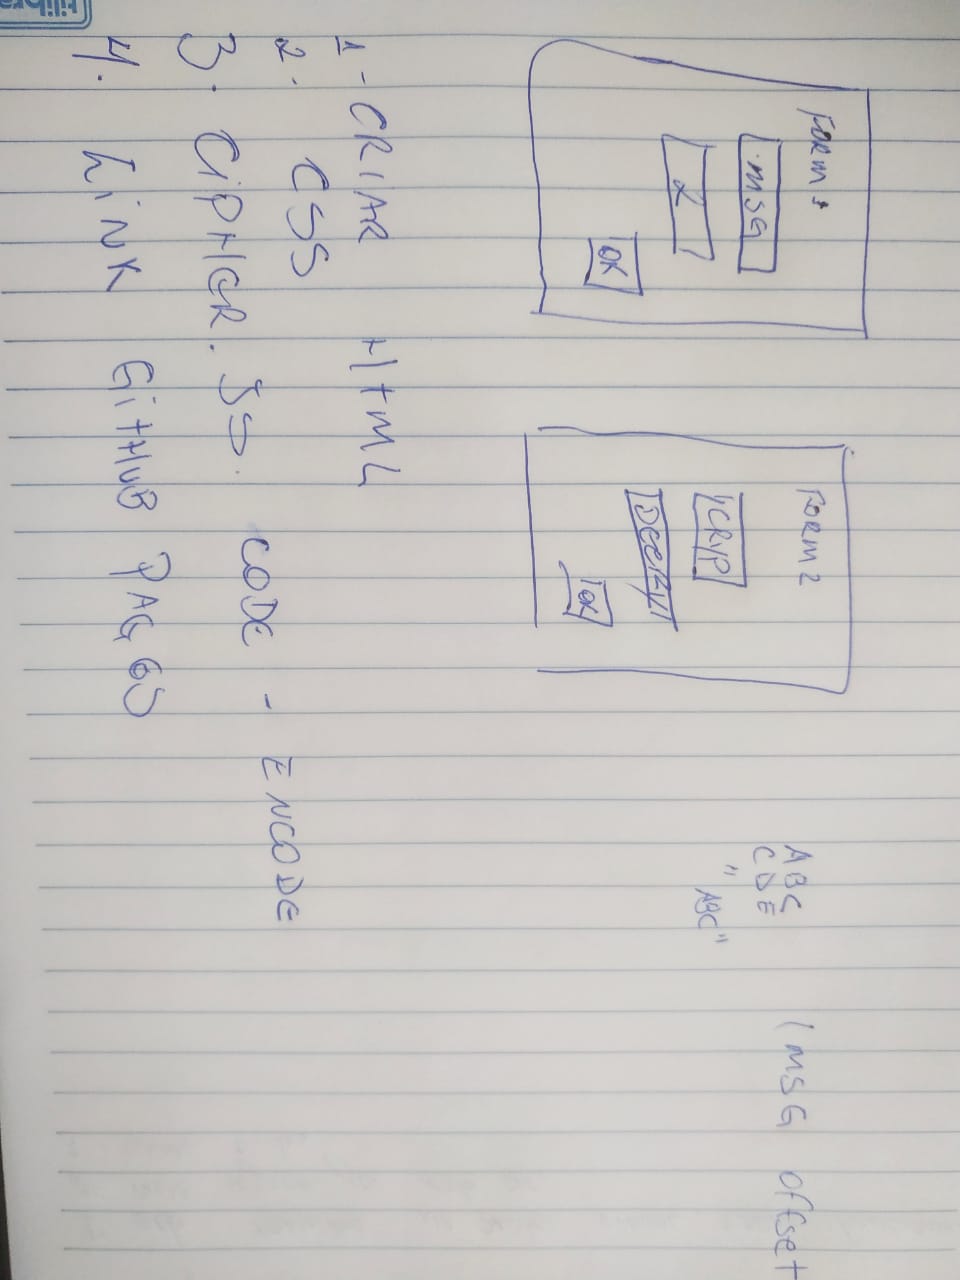 FORM 1
MSG
2
OK
FORM 2
CRYP
OK
ABC
CDE
"ABC"
MSG offset
1 - CRIAR HTML
2. CSS
3. CiPHER.JS. CODE - ENCODE
4. LiNK GiTHUB PAGES